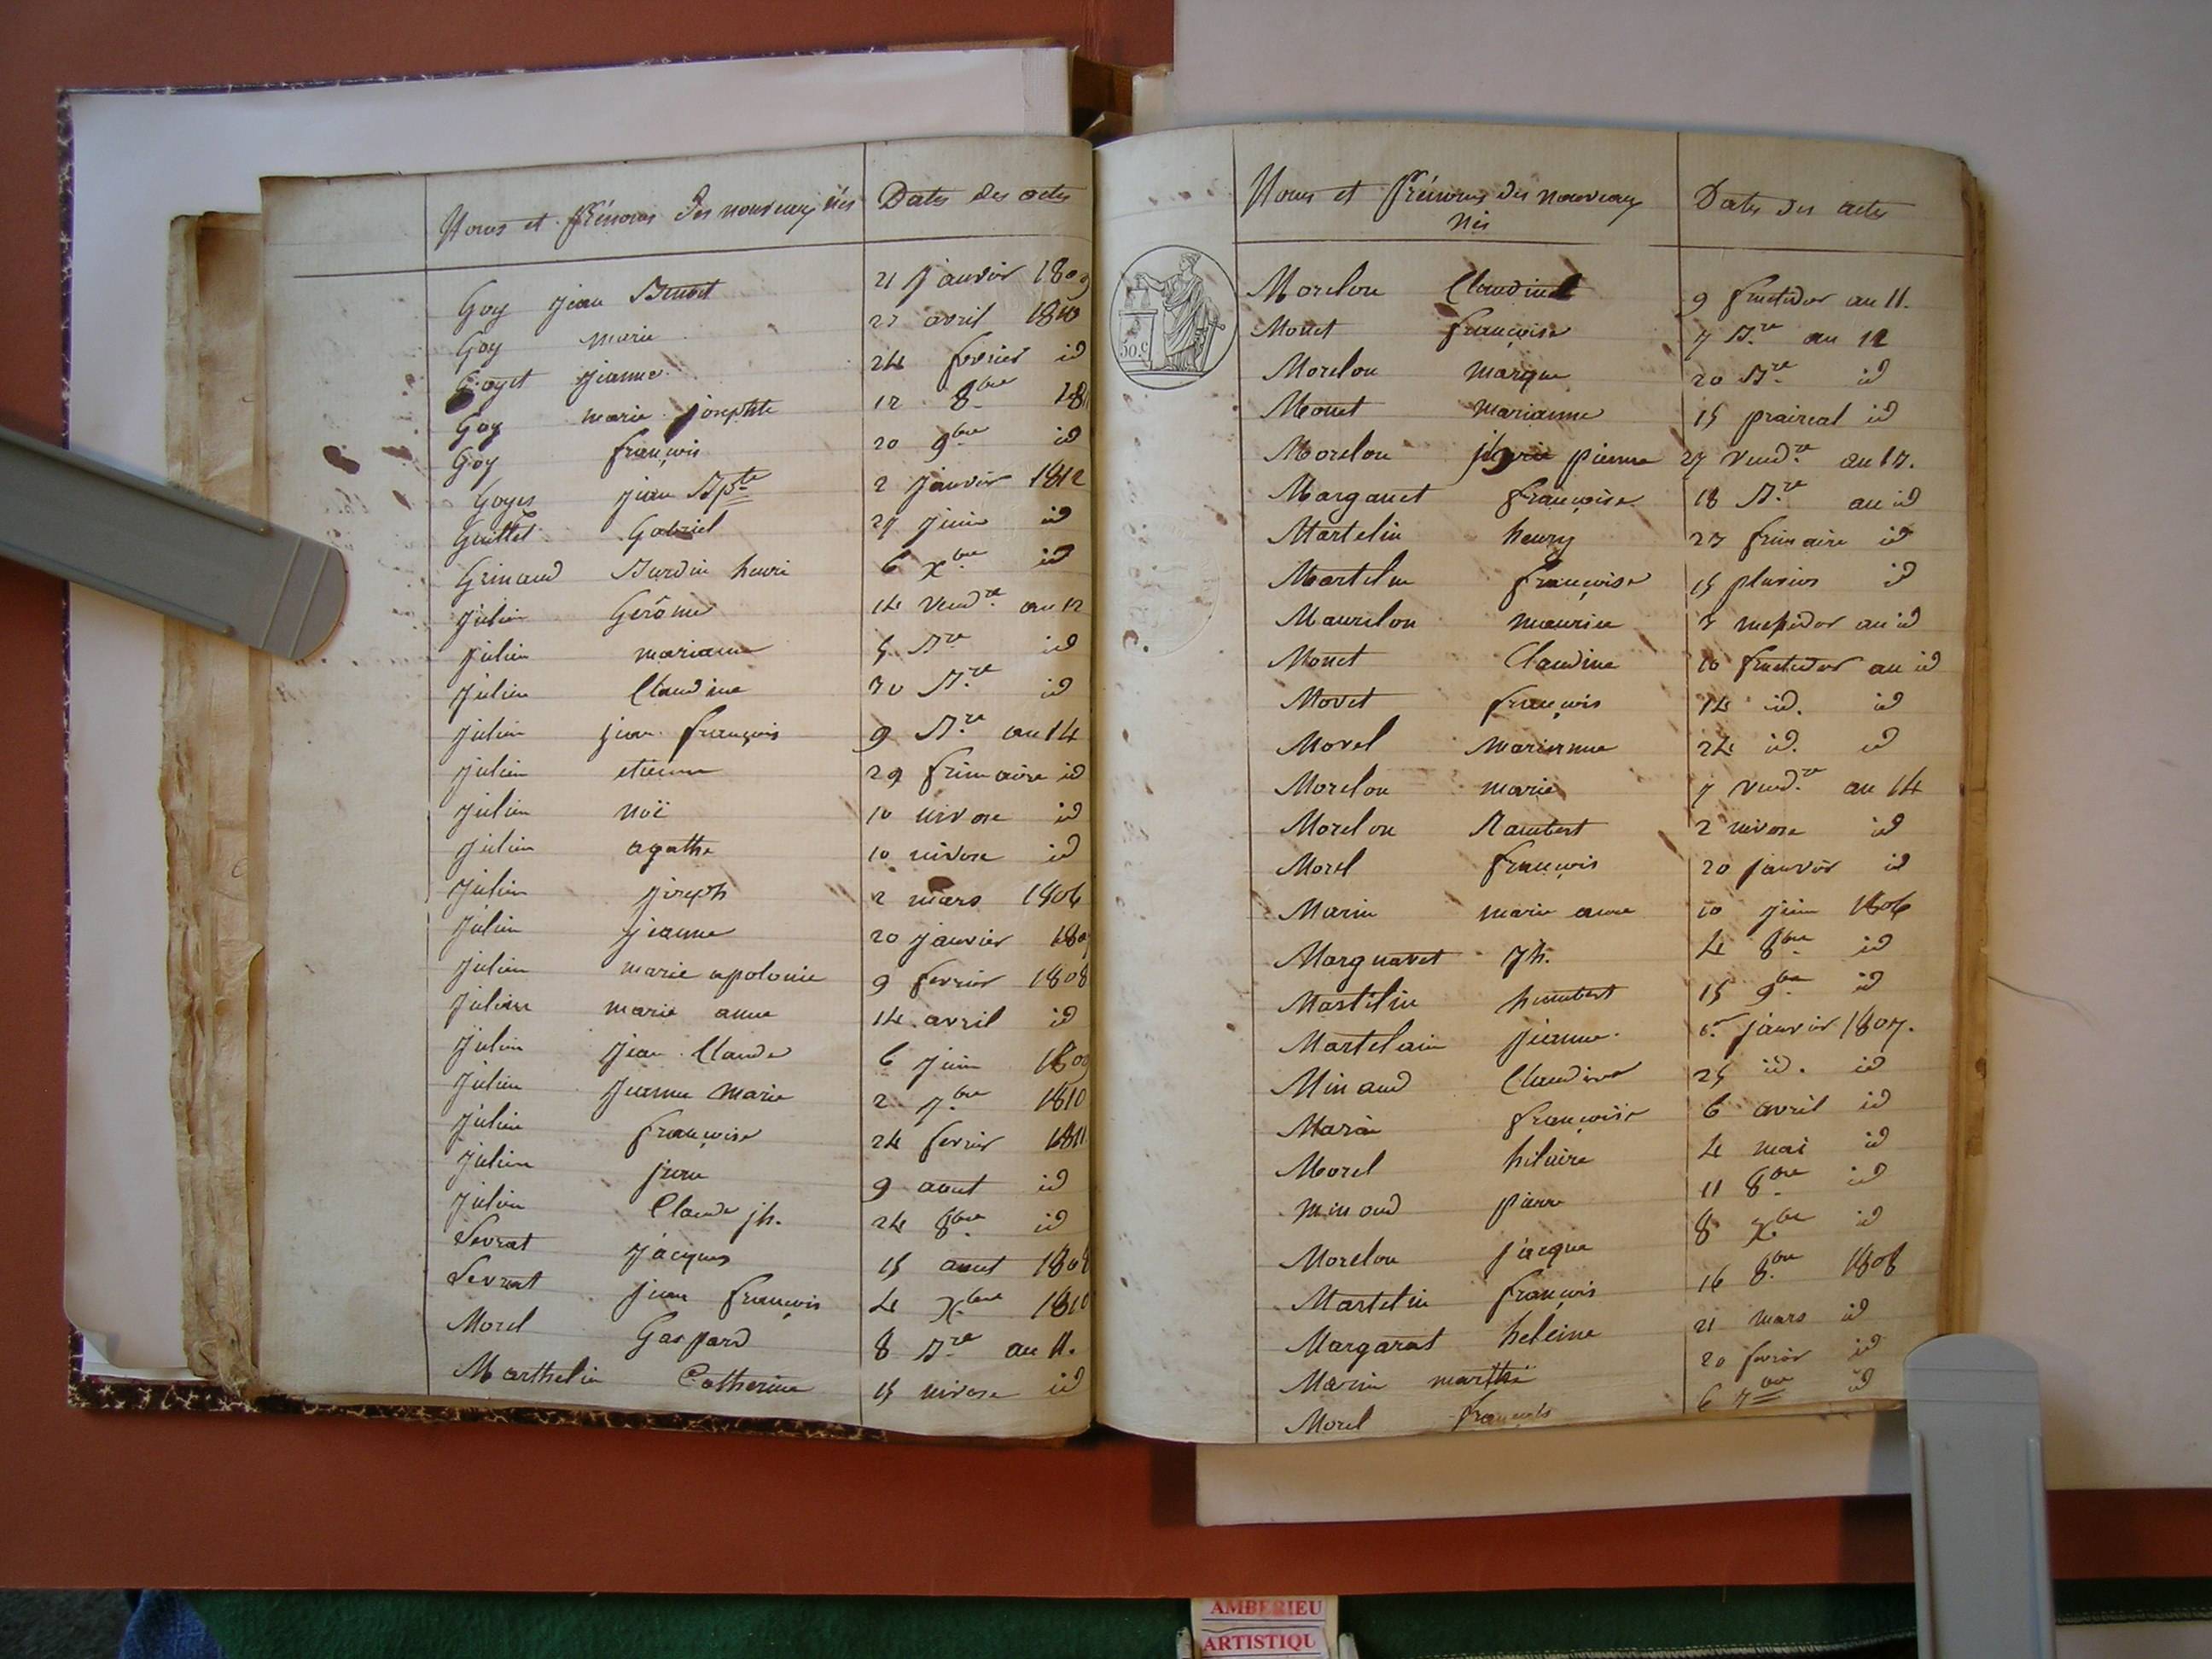 Noms et Prénoms des nouveaux nés Dates des actes
Goy jean Benoit 21 janvier 1809
Goy marie 23 avril 1810
Goyet jeanne 24 fevrier id
Goy marie josephte 12 8bre 181
Goy françois 20 9bre id
Goyet jean Bpte 2 janvier 1812
Guillet Gabriel 27 juin id
Grinand Burdin henri 6 xbre id
Julien Gerôme 14 vendre an 12
Julien marianne 5 Bre id
Julien Claudine 30 Bre id
Julien jean françois 9 Bre an 14
Julien etienne 29 frimaire id
Julien noë 10 nivose id
Julien agathe 10 nivose id
Julien joseph 2 mars 1806
Julien jeanne 20 janvier 180
Julien marie apolonie 9 fevrier 1808
Julien marie anne 14 avril id
Julien jean Claude 6 juin 1809
Julien jeanne marie 2 7bre 1810
Julien françoise 24 fevrier 1811
Julien jean 9 aout id
Julien Claude jh. 24 8bre id
Levrat jacques 15 aout 1808
Levrat jean françois 4 xbre 1810
Morel Gaspard 8 Bre an 11.
Marthelin Catherine 15 nivose id
Noms et Prénoms des nouveaux
nés
Dates des actes
50.c
Morelon Claudine 9 fructidor an 11.
Monet françoise 7 Bre an 12
Morelon marque 20 Bre id
Monet marianne 15 prairial id
Morelon pierre 27 vendre an 13.
Marganet françoise 18 Bre an id
Martelin henry 23 frimaire id
Martelin françoise 15 pluvios id
Maurelon maurice 3 messidor an id
Monet Claudine 10 fructidor an id
Movet françois 14 id. id
Morel marianne 24 id. id
Morelon marie 7 vendre an 14
Morelon Rambert 2 nivose id
Morel françois 20 janvier id
Marin marie anne 10 juin 1806
Margnavet Jh. 4 8bre id
Martilin humbert 15 9bre id
Martelain jeanne. 6. janvier 1807.
Minaud Claudine 25 id. id
Marin françoise 6 avril id
Morel hilaire 4 mai id
Minaud pierre 11 8bre id
Morelon jacque 8 xbre id
Martelin françois 16 8bre 1808
Margarat heleine 21 mars id
Marin marthe 20 fevrier id
Morel françois 6 7bre id
AMBERIEU
ARTISTIQU